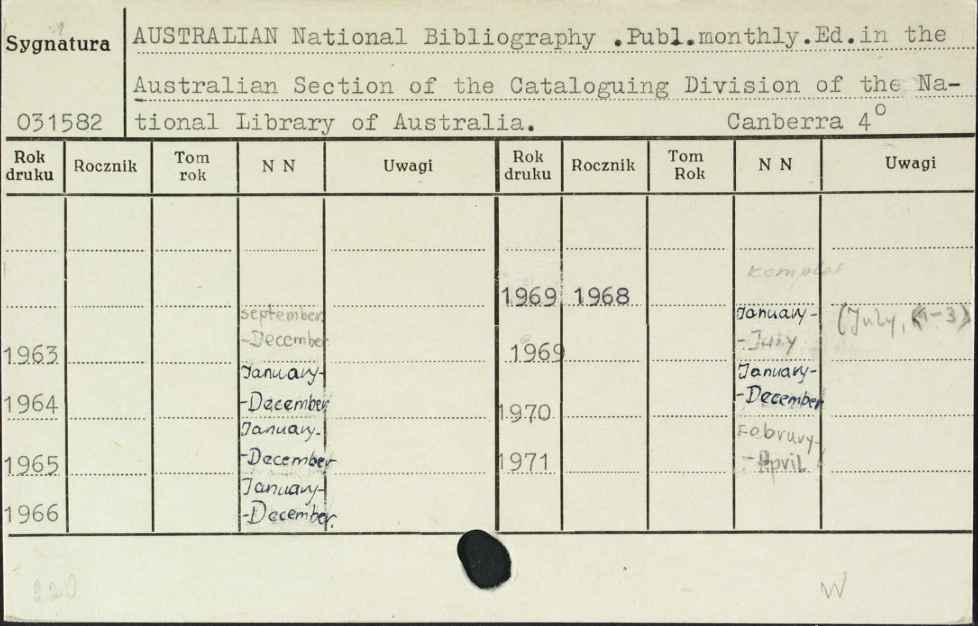 Sygnatura
AUSTRALIAN National Bibliography .Publ.monthly.Ed.in the
Australian Section of the Cataloguing Division of the Na-
031582
tional Library of Australia. Canberra 4°
Rok druku Rocznik Tom rok N N Uwagi Rok druku Rocznik Tom Rok N N Uwagi
komplet
1969 1968
september
-December
1963
January-
-December
1964
January-
-December
1965
January-
-December
1966
January-
-July
(July, 1-3)
1969
January-
-December
1970
Februry-
-April
1971
220
W